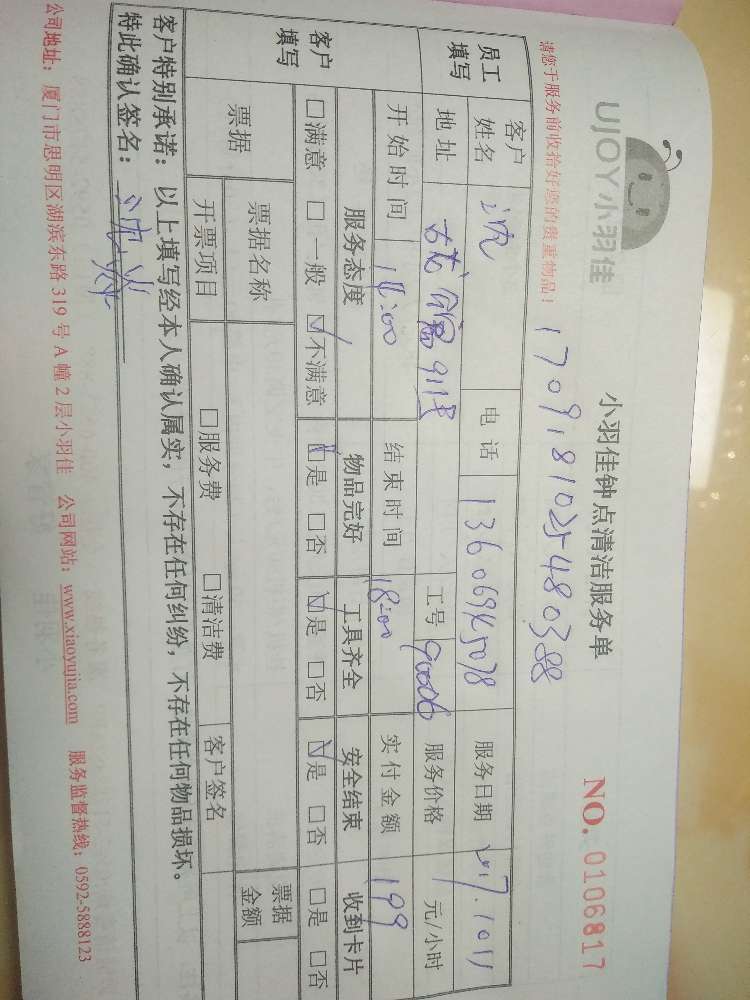 UJOY小羽佳
小羽佳钟点清洁服务单
NO. 0106817
请您于服务前收拾好您的贵重物品!
员工填写
客户姓名
电话
服务日期 2017.1011
地址
工号 90006
服务价格 元/小时
开始时间 14:00
结束时间 18:00
实付金额 199
客户填写
服务态度 物品完好 工具齐全 安全结束 收到卡片
□满意 □一般 ☑不满意 ☑是 □否 ☑是 □否 ☑是 □否 □是 □否
票据
票据名称
票据金额
开票项目 □服务费 □清洁费 客户签名
客户特别承诺:以上填写经本人确认属实,不存在任何纠纷,不存在任何物品损坏。
特此确认签名:
公司地址:厦门市思明区湖滨东路319号A幢2层小羽佳 公司网站:www.xiaoyujia.com 服务监督热线:0592-5888123